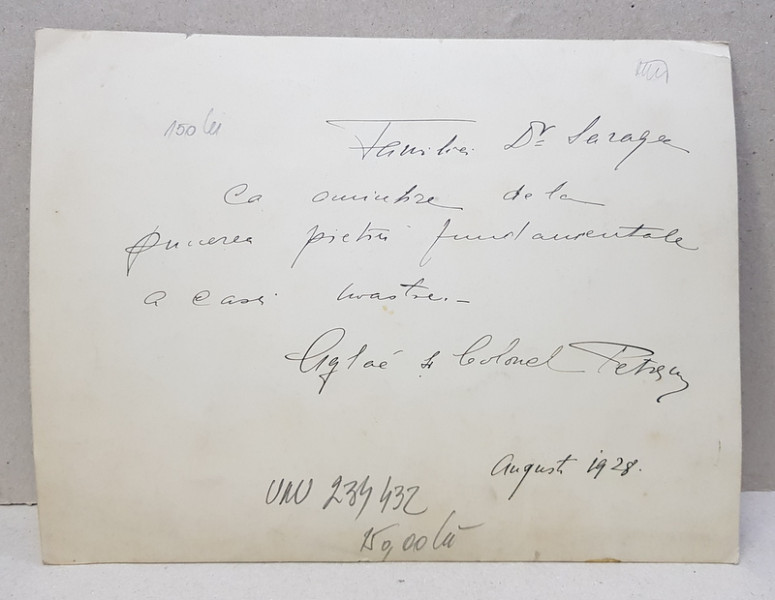 150 lei
Familiei Dr Saragea
Ca amintire de la
punerea pietrii fundamentale
a casei noastre.-
Aglaé și Colonel Petrescu
August 1928.
UNU 234432
150,00 lei